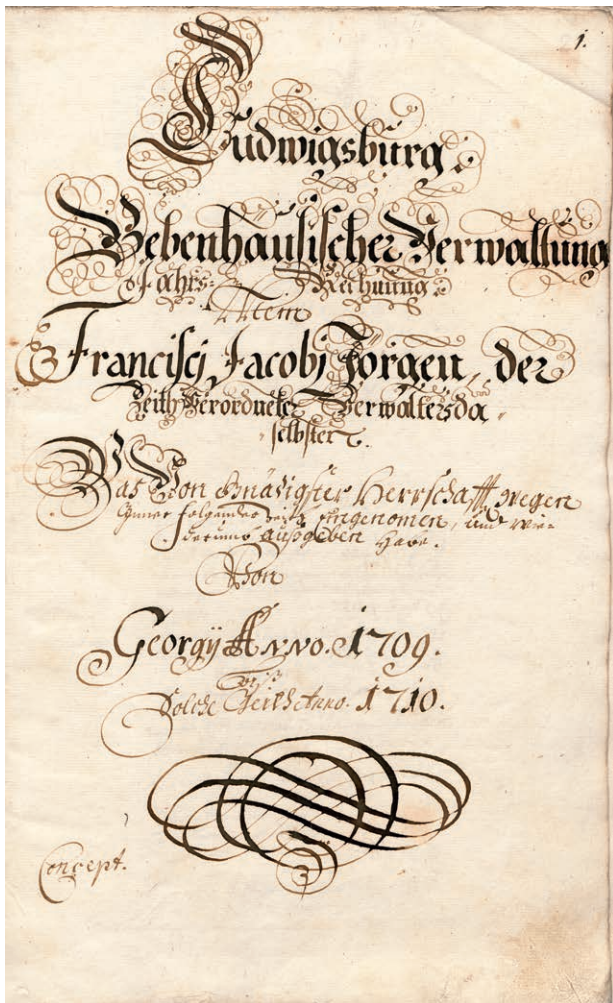 1.
Ludwigsburg.
Bebenhausischer Verwaltung
Jahrs- Rechnung.
Mein
Francisci Jacobi Jörgen, der
Zeith Verordneten Verwalters da-
selbsten.
Was Von Gnädigster Herrschafft wegen
Inner folgender Zeith eingenomen, und wie-
derumb außgeben habe.
Von
Georgÿ Anno. 1709.
biß
Solche Zeith Anno. 1710.
Concept.